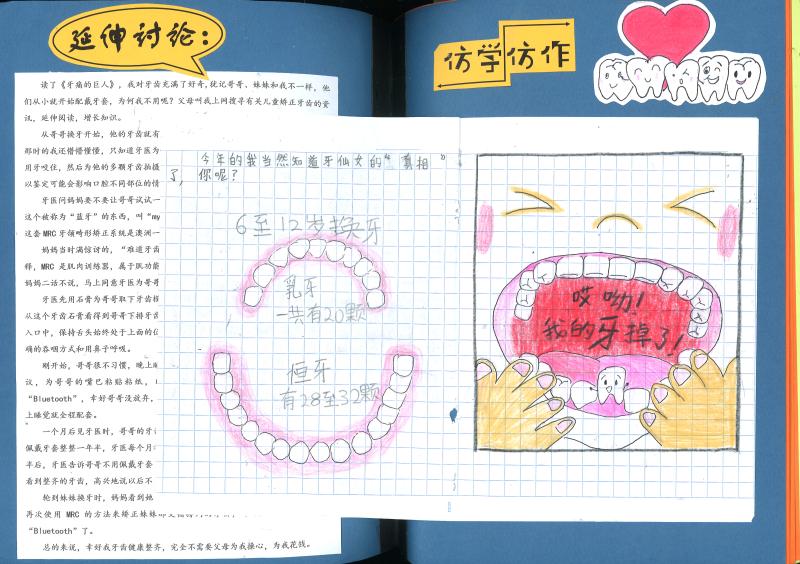 延伸讨论：
读了《牙痛的巨人》，我对牙齿充满了好奇，犹记哥哥、妹妹和我不一样，他
们从小就开始配戴牙套，为何我不用呢？父母吁我上网搜寻有关儿童矫正牙齿的资
讯，延伸阅读，增长知识。
从哥哥换牙开始，他的牙齿就有
那时的我还懵懵懂懂，只知道牙医为
用牙咬住，然后为他的多颗牙齿拍摄
以鉴定可能会影响口腔不同部位的情
牙医问妈妈要不要让哥哥试试一
这个被称为“蓝牙”的东西，叫“my
这套 MRC 牙领畸形矫正系统是澳洲一
妈妈当时满惊讶的，“难道牙齿
释，MRC 是肌肉训练器，属于肌功能
妈妈二话不说，马上同意牙医为哥哥
牙医先用石膏为哥哥取下牙齿模
从这个牙齿石膏看得到哥哥下排牙齿
入口中，保持舌头始终处于上面的位
确的吞咽方式和用鼻子呼吸。
刚开始，哥哥很不习惯，晚上睡
议，为哥哥的嘴巴粘贴粘纸，
“Bluetooth”，幸好哥哥没放弃。
上睡觉就全程配套。
一个月后见牙医时，哥哥的牙
佩戴牙套整整一年半，牙医每个月
半后，牙医告诉哥哥不用佩戴牙套
看到整齐的牙齿，高兴地说以后不
轮到妹妹换牙时，妈妈看到她
再次使用 MRC 的方法来矫正妹妹
“Bluetooth”了。
总的来说，幸好我牙齿健康整齐，完全不需要父母为我操心，为我花钱。
今年的我当然知道牙仙女的“真相”
了，你呢？
6至12岁换牙
乳牙
一共有20颗
恒牙
有28至32颗
仿学仿作
哎呦！
我的牙掉了！